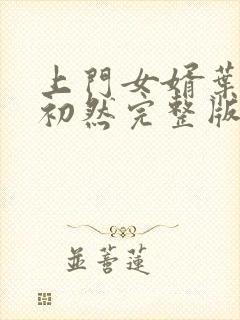 上門女婿葉
初然完整版
並蓄蓮